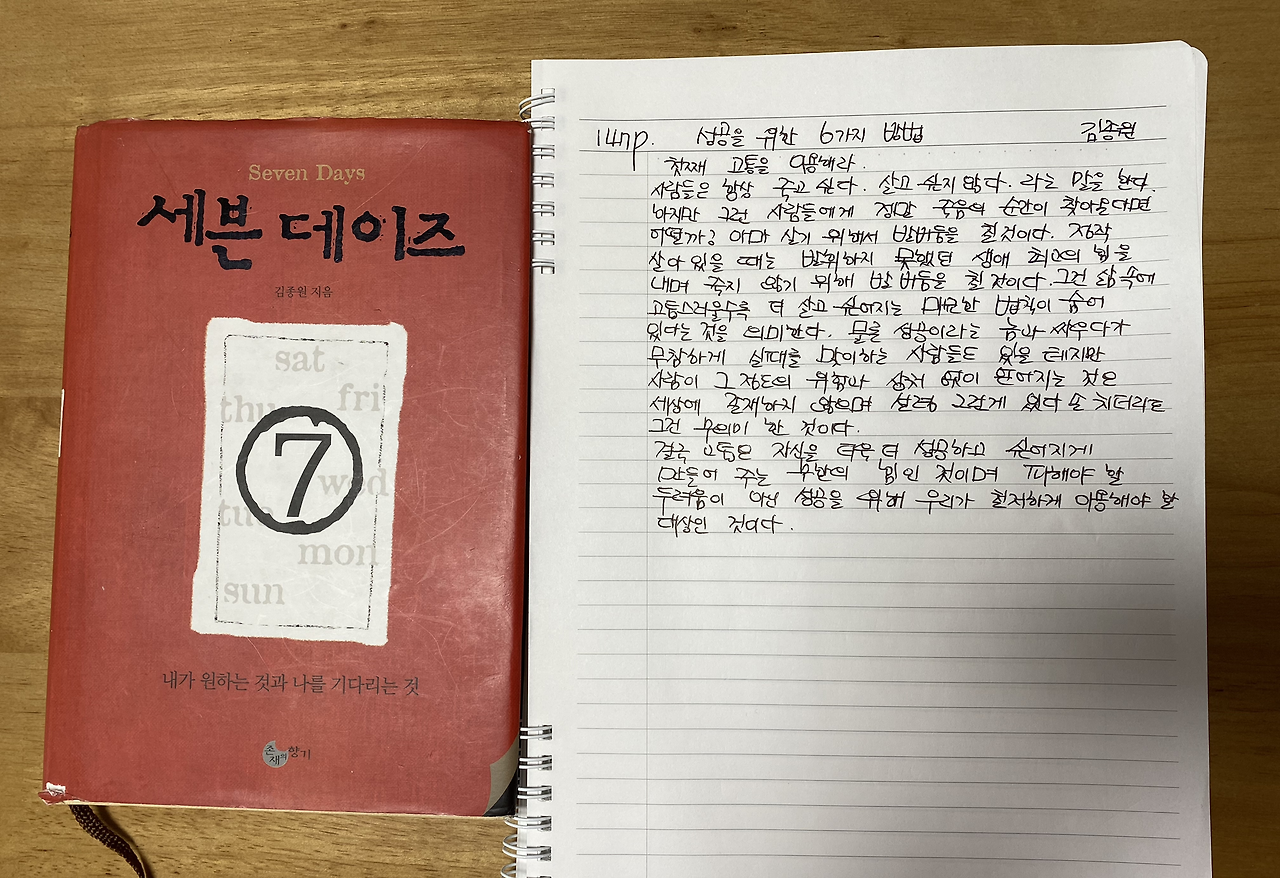 Seven Days
세븐 데이즈
김종원 지음
sat
fri
thu
7
wed
tue
mon
sun
내가 원하는 것과 나를 기다리는 것
존재의 향기
147p. 성공을 위한 6가지 방법 김종원
첫째 고통을 이용해라.
사람들은 항상 죽고 싶다. 살고 싶지 않다. 라는 말을 한다.
하지만 그런 사람들에게 정말 죽음의 순간이 찾아온다면
어떨까? 아마 살기 위해서 발버둥을 칠 것이다. 정작
살아 있을 때는 발휘하지 못했던 생애 최고의 힘을
내며 죽지 않기 위해 발버둥을 칠 것이다. 그건 삶 속에
고통스러울수록 더 살고 싶어지는 묘한 법칙이 숨어
있다는 것을 의미한다. 물론 성공이라는 놈과 싸우다가
무참하게 실패를 맞이하는 사람들도 있을 테지만
사람이 그 정도의 위험과 상처 없이 얻어지는 것은
세상에 존재하지 않으며 설령 그런게 있다손 치더라도
그건 무의미 한 것이다.
결국 고통은 자신을 더욱 더 성공하고 싶어지게
만들어 주는 무한의 힘인 것이며 피해야 할
두려움이 아닌 성공을 위해 우리가 철저하게 이용해야 할
대상인 것이다.